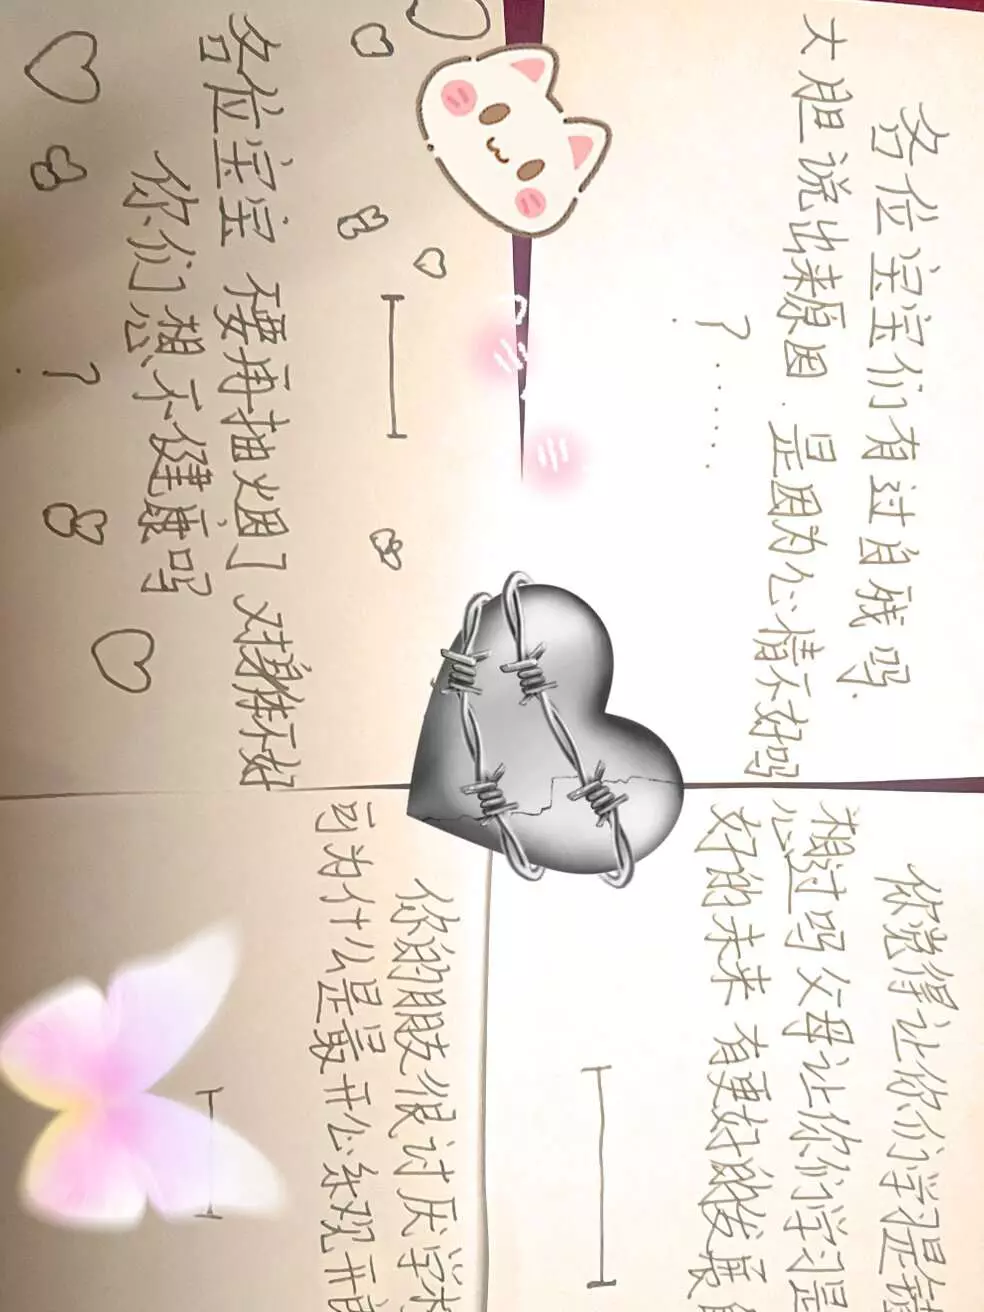 各位宝宝们有过自残吗.
大胆说出来原因.是因为心情不好吗
?......
你觉得让你们学习是
想过吗 父母让你们学习是
好的未来 有更好的发展
各位宝宝 不要再抽烟了 对身体不好
你们想不健康吗
?
你的朋友很讨厌学
可为什么是最开